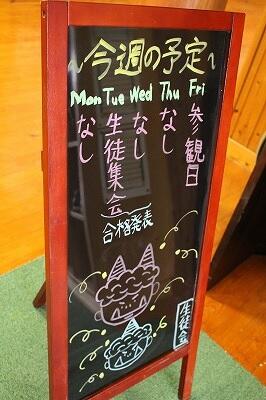 ～今週の予定～
Mon Tue Wed Thu Fri
なし
生徒集会
合格発表
なし
なし
参観日
生徒会